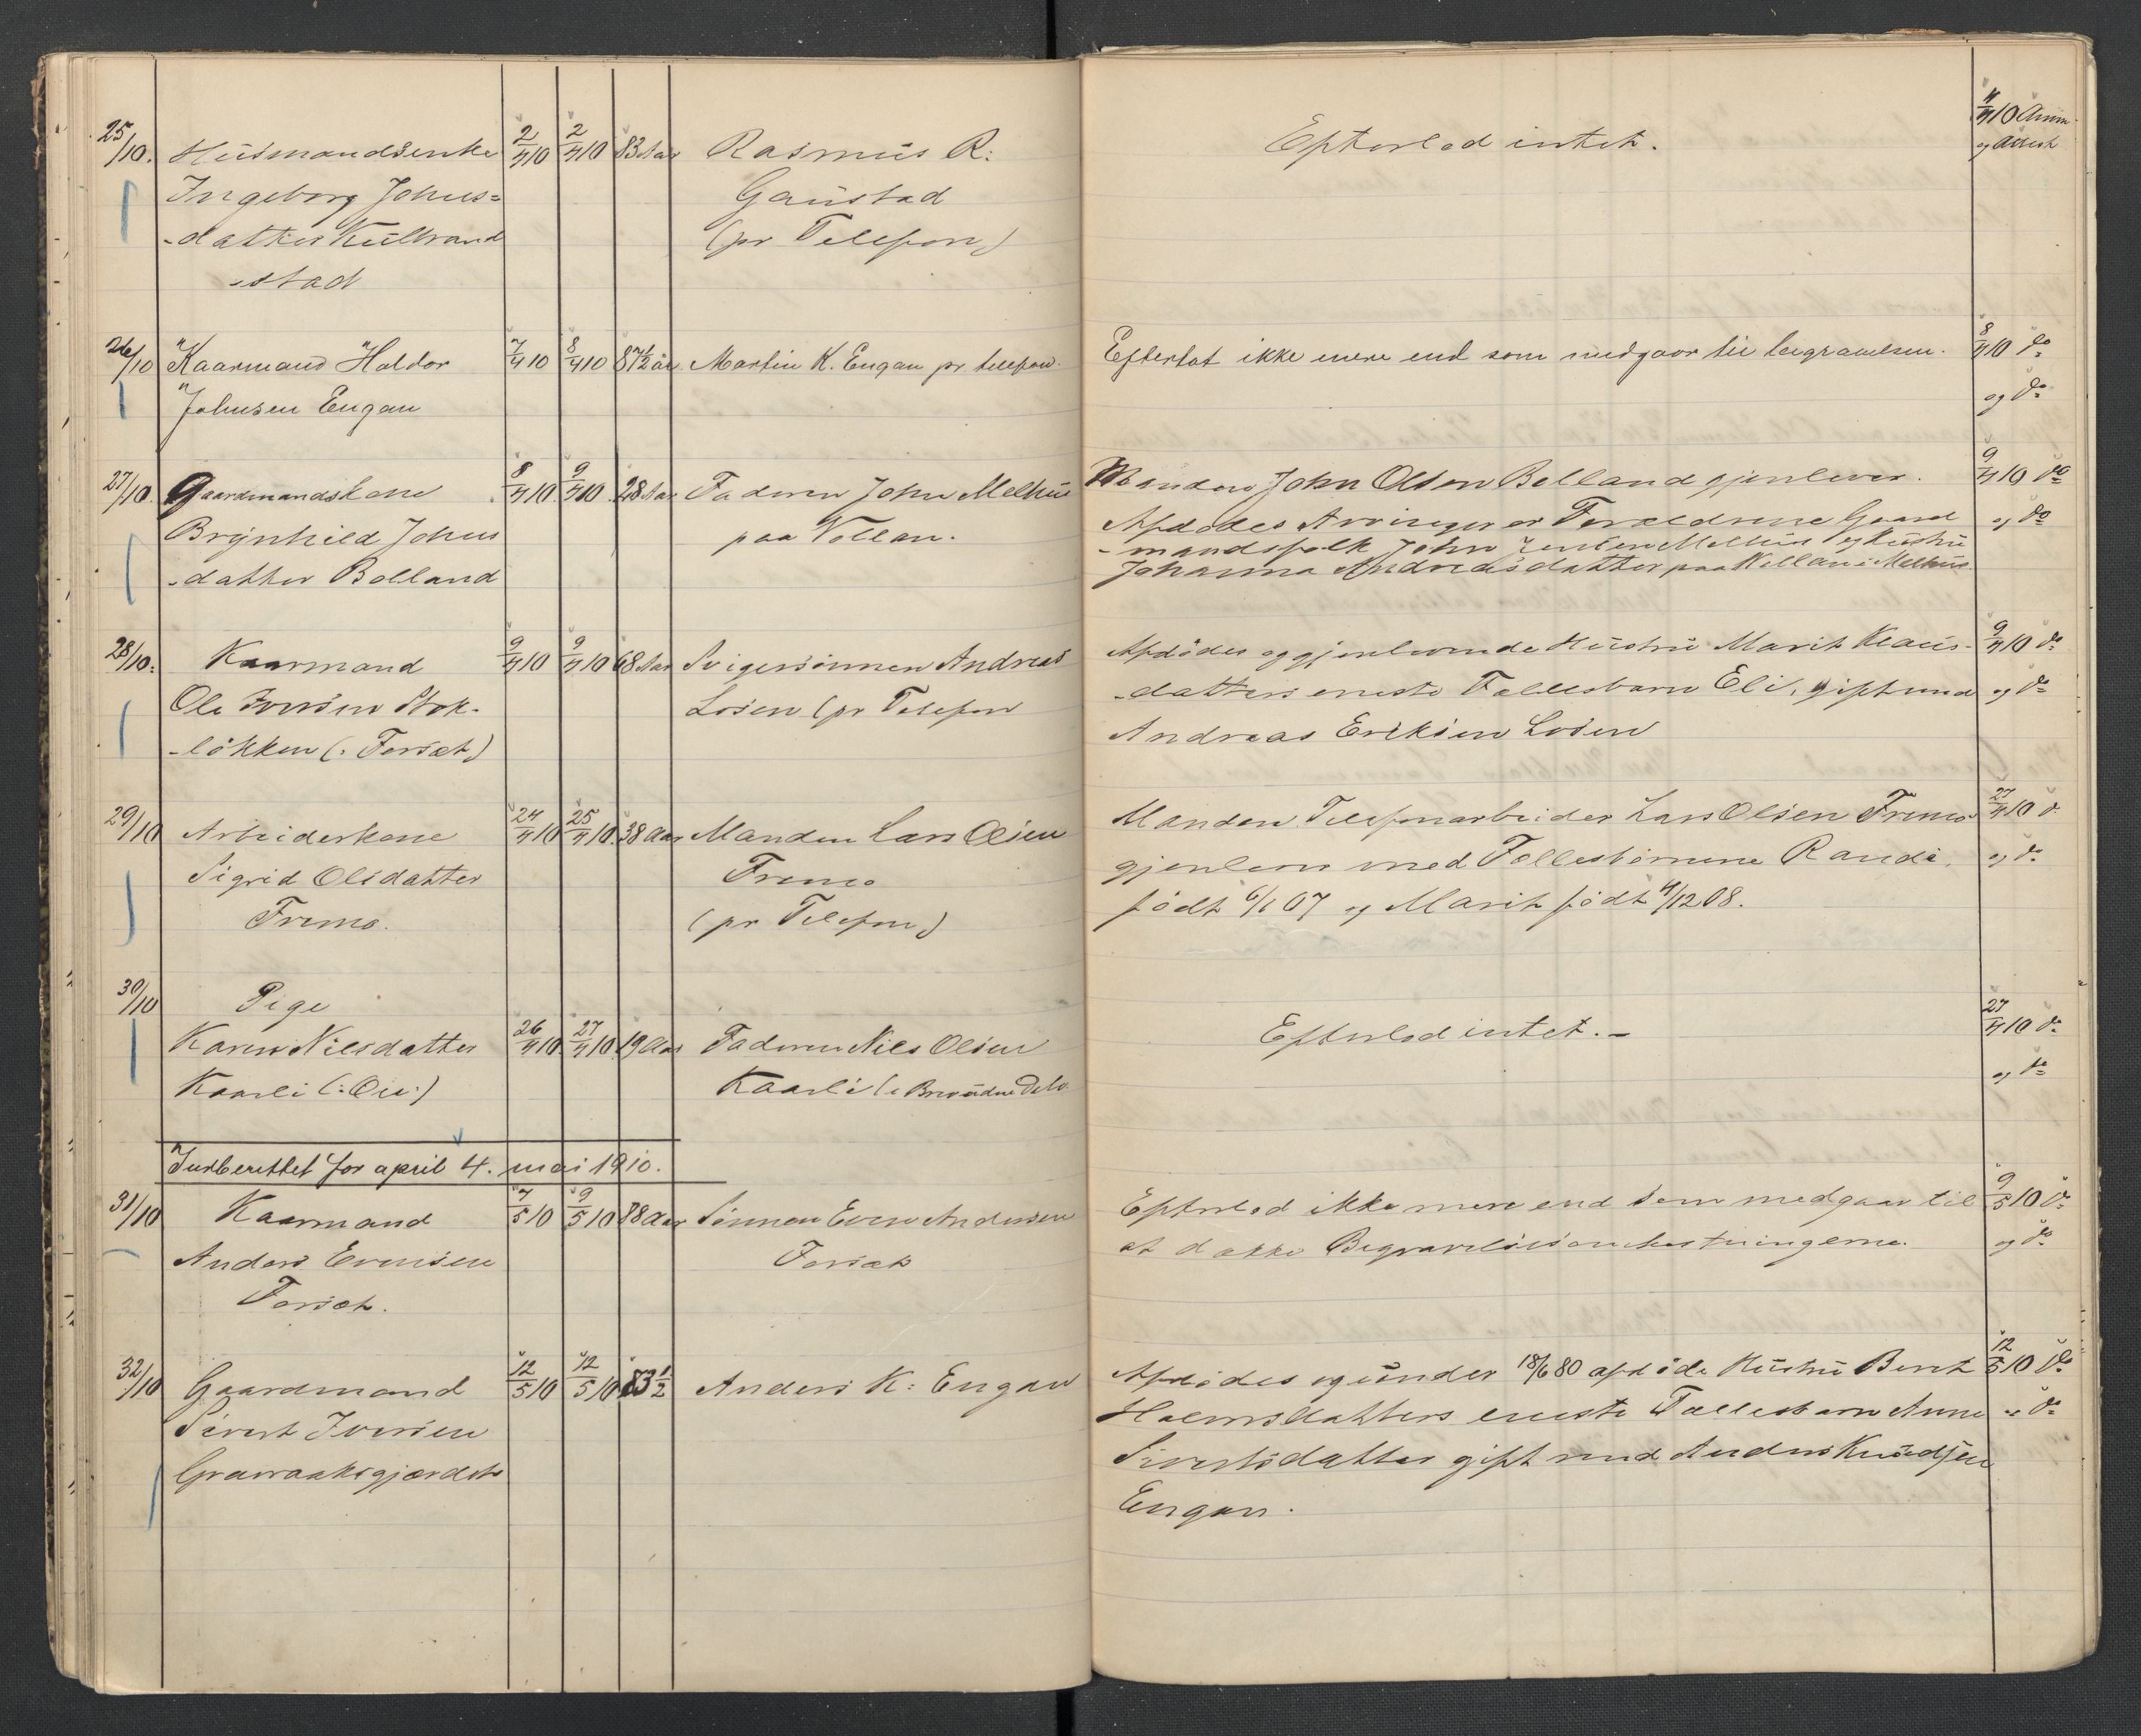 25/10. Husmandsenke 2/4 10 2/4 10 83 Aar Rasmus R: Efterlod intet. 4/4 10 Anm.
Ingeborg Johns= Gaustad og Attest
-datter Kulbrand (pr Telefon)
-stad
26/10 Kaarmand Haldor 7/4 10 8/4 10 87½ år Martin K. Engan pr. telefon. Efterlot ikke mere end som medgaar til begravelsen. 8/4 10 do
Johnsen Engan og do
27/10. Gaardmandskone 8/4 10. 9/4 10. 28 Aar Faderen John Melhus Manden John Olsen Bolland gjenlever. 9/4 10 do
Brynhild Johns paa Vollan. Afdødes Arvinger er Forældrene Gaard og do
-datter Bolland -mandsfolk John Jensen Melhus og Hustru
Johanna Andreasdatter paa Vollan i Melhus
28/10: Kaarmand 9/4 10 9/4 10 68 Aar Svigersønnen Andreas Afdødes og gjenlevende Hustru Marit Klaus- 9/4 10 do
Ole Iversen Stok- Losen (pr Telefon -datters eneste Fællesbarn Eli, gift med og do
-løkken (: Forsæt) Andreas Eriksen Losen
29/10 Arbeiderkone 24/4 10 25/4 10. 38 Aar Manden Lars Olsen Manden Telefonarbeider Lars Olsen Fremo 27/4 10 do
Sigrid Olsdatter Fremo gjenlever med Fællesbørnene Randi, og do
Fremo. (pr Telefon) født 6/1 07 og Marit født 4/12 08.
30/10 Pige
Karen Nilsdatter 26/4 10 27/4 10 19 Aar Faderen Nils Olsen Efterlod intet.- 27/4 10 do
Kaasli (: Øie:) Kaasli ( og do
Indberettet for april 4. mai 1910.
31/10 Kaarmand 7/5 10 9/5 10 88 Aar Sønnen Even Andersen Efterlod ikke mere end som medgaar til 9/5 10 do
Anders Evensen Forsæt at dække Begravelsesomkostningerne. og do
Forsæt.
32/10 Gaardmand 12/5 10 12/5 10 83½ Anders K: Engan Afdødes og under 18/6 80 afdøde Hustru Berit 12/5 10 do
Sivert Iversen Holmsdatters eneste Fællesbarn Anne og do
Gravraaksgjærdet Sivertsdatter gift med Anders Knudsen
Engan.